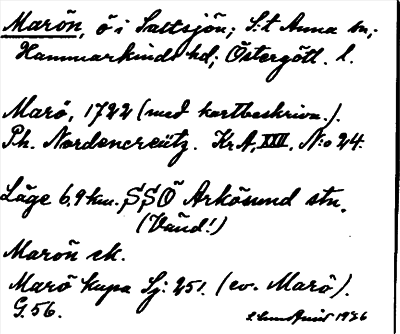 Marön, ö i Saltsjön; S:t Anna sn;
Hammarkinds hd; Östergötl. l.
Marö, 1722 (med kortbeskrivn.).
Ph. Nordencreütz. KrA, XXII, N:o 24.
Läge 6,9 km. SSÖ Arkösund stn.
(Vänd!)
Marön ek.
Marö kupa Sj: 251. (ev. Marö).
G. 56.
1926